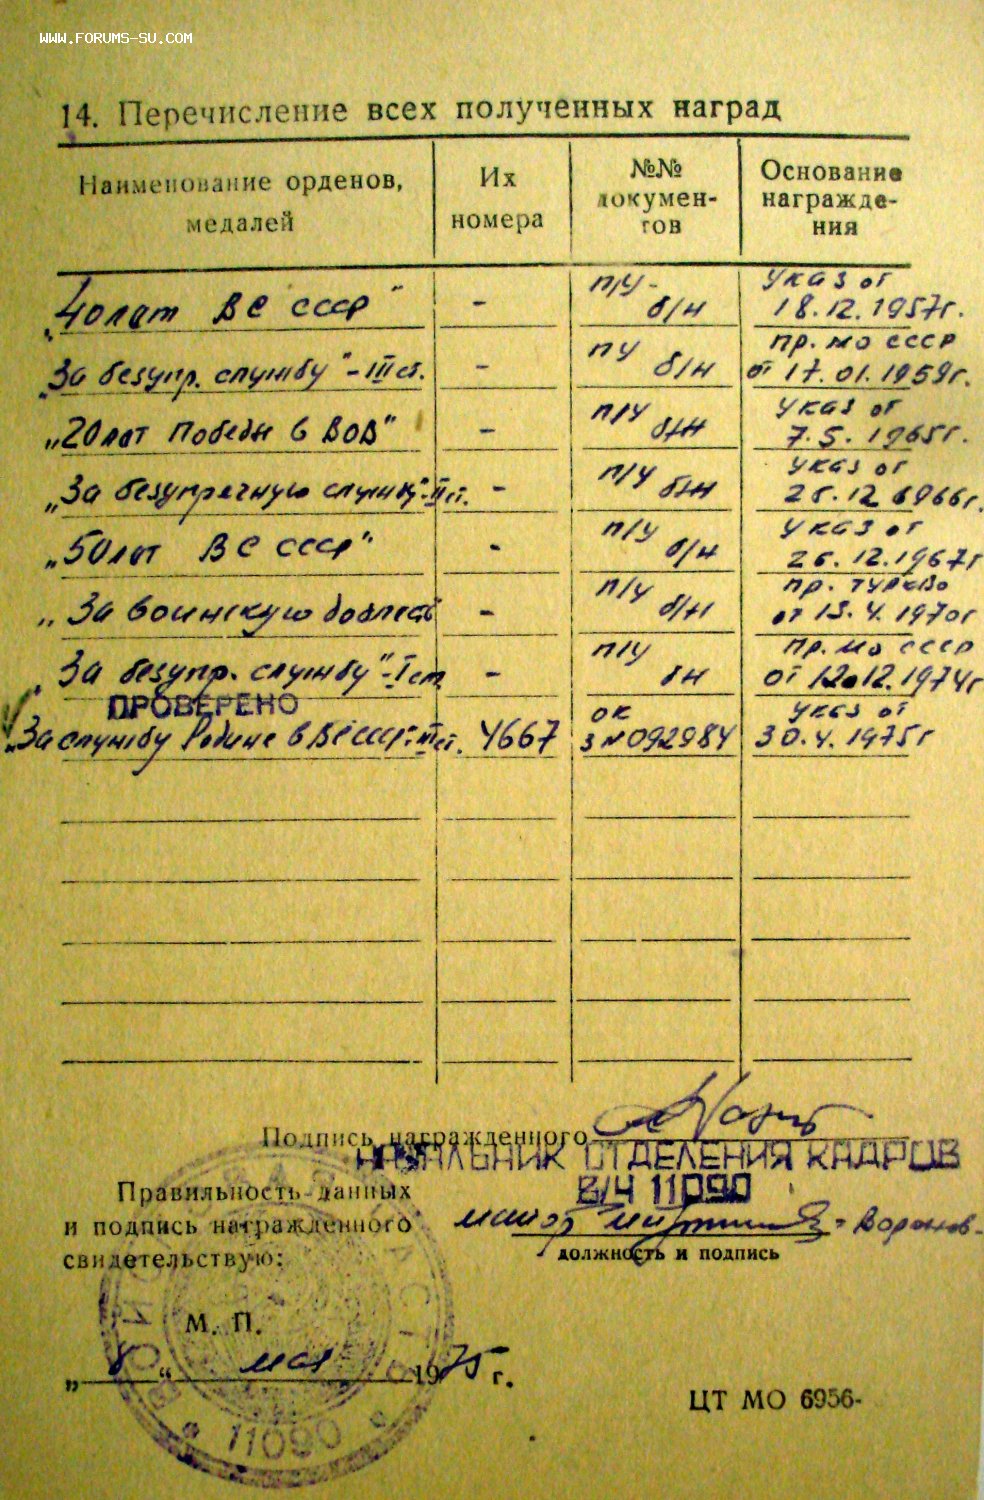 WWW.FORUMS-SU.COM
14. Перечисление всех полученных наград
Наименование орденов, медалей
Их номера
№№ докумен-тов
Основание награжде-ния
„40 лет ВС СССР" - п/у - б/н Указ от 18.12.1957г.
„За безупр. службу" - III ст. - п/у б/н пр. МО СССР от 17.01.1959г.
„20 лет Победы в ВОВ" - п/у б/н Указ от 7.5.1965г.
„За безупречную службу" - II ст. - п/у б/н Указ от
„50 лет ВС СССР" - п/у б/н Указ от 26.12.1967г
„За воинскую доблесть - п/у б/н пр. ТуркВО от 13.4.1970г
За безупр. службу" - I ст. - п/у бн пр. МО СССР от 12.12.1974г
ПРОВЕРЕНО
„За службу Родине в ВС СССР" III ст. 4667 ок З №092984 Указ от 30.4.1975г
Подпись награжденного
НАЧАЛЬНИК ОТДЕЛЕНИЯ КАДРОВ
В/Ч 11090
Правильность данных
и подпись награжденного
свидетельствую:
майор
должность и подпись
М. П.
„8" мая 1975 г.
11090
ЦТ МО 6956-